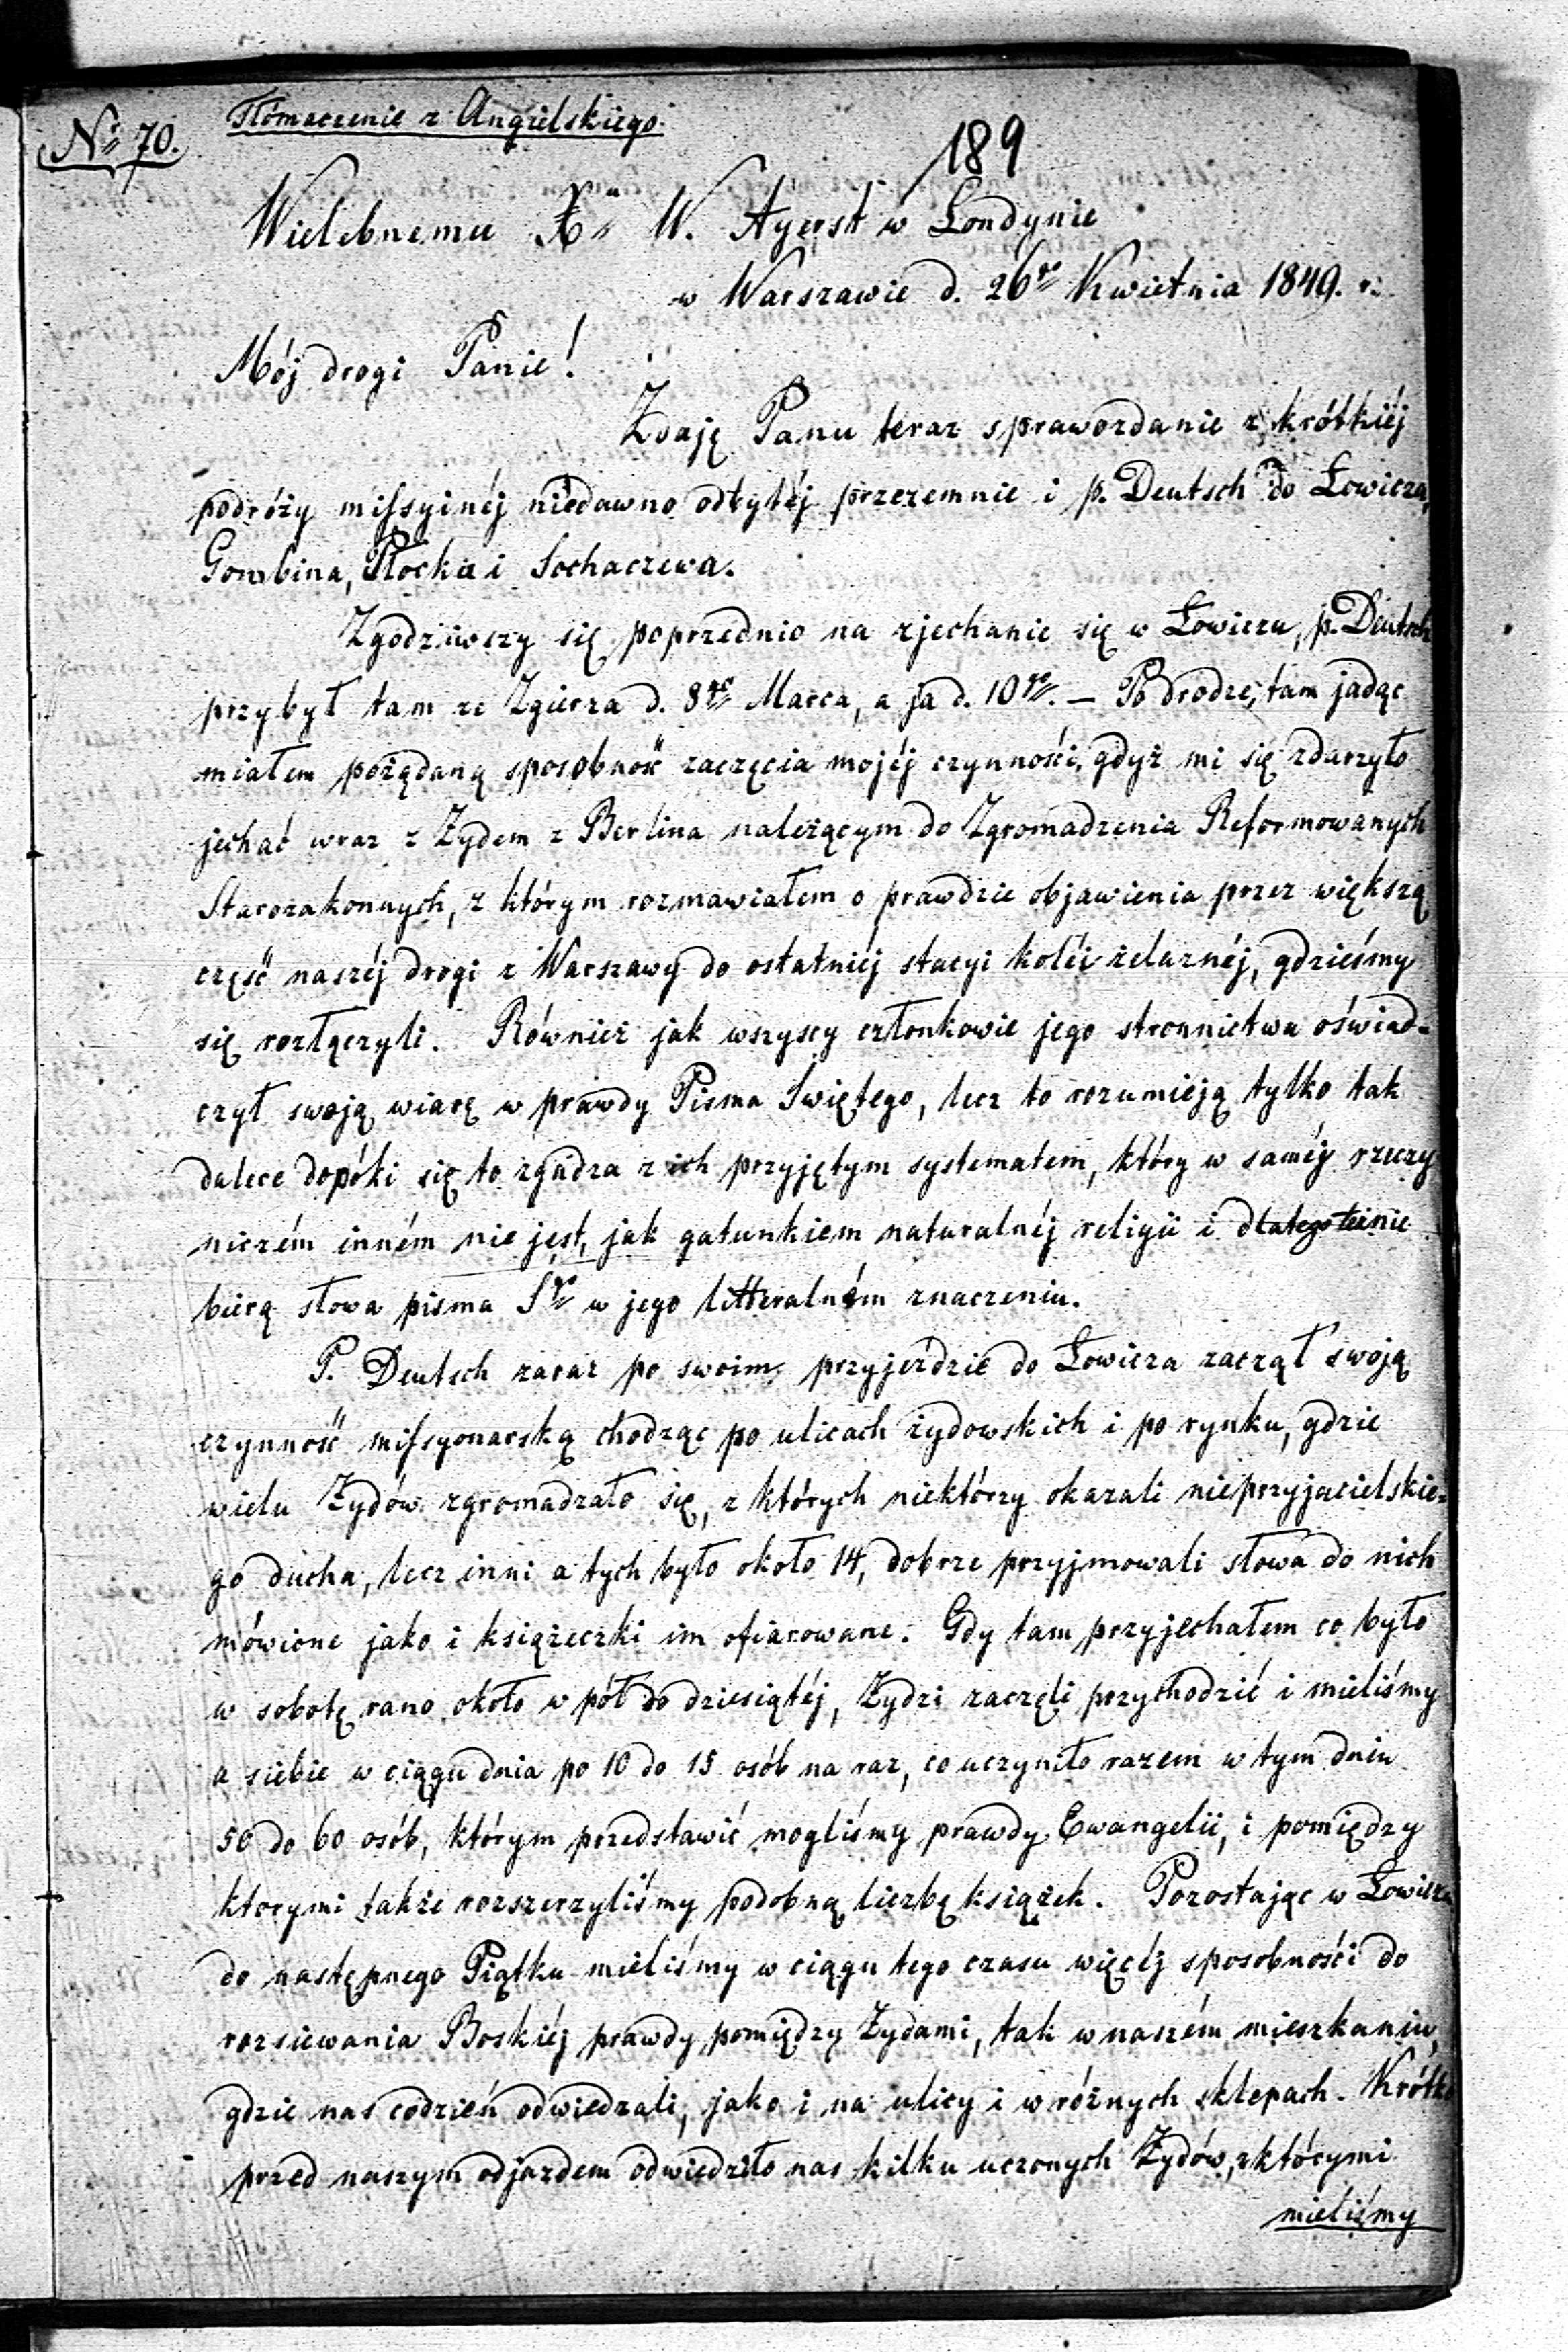 Nº 70.
Tłómaczenie z Angielskiego.
189
Wielebnemu Xu W. Ayerst w Londynie
w Warszawie d. 26go Kwietnia 1849. r.
Mój drogi Panie!
Zdaję Panu teraz sprawozdanie z krótkiéj
podróży missyinéj niedawno odbytéj przezemnie i p. Deutsch do Łowicza,
Gombina, Płocka i Sochaczewa.
Zgodziwszy się poprzednio na zjechanie się w Łowiczu, p. Deutsch
przybył tam ze Zgierza d. 8go Marca, a ja d. 10go. — Po drodze, tam jadąc
miałem pożądaną sposobność zaczęcia mojéj czynności, gdyż mi się zdarzyło
jechać wraz z Żydem z Berlina należącym do Zgromadzenia Reformowanych
Starozakonnych, z którym rozmawiałem o prawdzie objawienia przez większą
część naszéj drogi z Warszawy do ostatniéj stacyi koléi żelaznéj, gdzieśmy
się rozłączyli. Również jak wszyscy członkowie jego stronnictwa oświad=
czył swoją wiarę w prawdy Pisma Swiętego, lecz to rozumieją tylko tak
dalece dopóki się to zgadza z ich przyjętym systematem, który w saméj rzeczy
niczém inném nie jest, jak gatunkiem naturalnéj religii i dlatego też nie
biorą słowa pisma Sgo w jego litteralném znaczeniu.
P. Deutsch zaraz po swoim przyjeździe do Łowicza zaczął swoją
czynność missyonarską chodząc po ulicach żydowskich i po rynku, gdzie
wielu Żydów zgromadzało się, z których niektórzy okazali nieprzyjacielskie=
go ducha, lecz inni a tych było około 14, dobrze przyjmowali słowa do nich
mówione jako i książeczki im ofiarowane. Gdy tam przyjechałem co było
w sobotę rano około w pół do dziesiątéj, Żydzi zaczęli przychodzić i mieliśmy
u siebie w ciągu dnia po 10 do 15 osób na raz, co uczyniło razem w tym dniu
50 do 60 osób, którym przedstawić mogliśmy prawdy Ewangelii, i pomiędzy
ktorymi także rozszerzyliśmy podobną liczbę książek. Pozostając w Łowiczu
do następnego Piątku mieliśmy w ciągu tego czasu więcéj sposobności do
rozsiewania Boskiéj prawdy pomiędzy Żydami, tak w naszém mieszkaniu,
gdzie nas codzień odwiedzali, jako i na ulicy i w różnych sklepach. Krótko
przed naszym odjazdem odwiedziło nas kilku uczonych Żydów, z którymi
mieliśmy